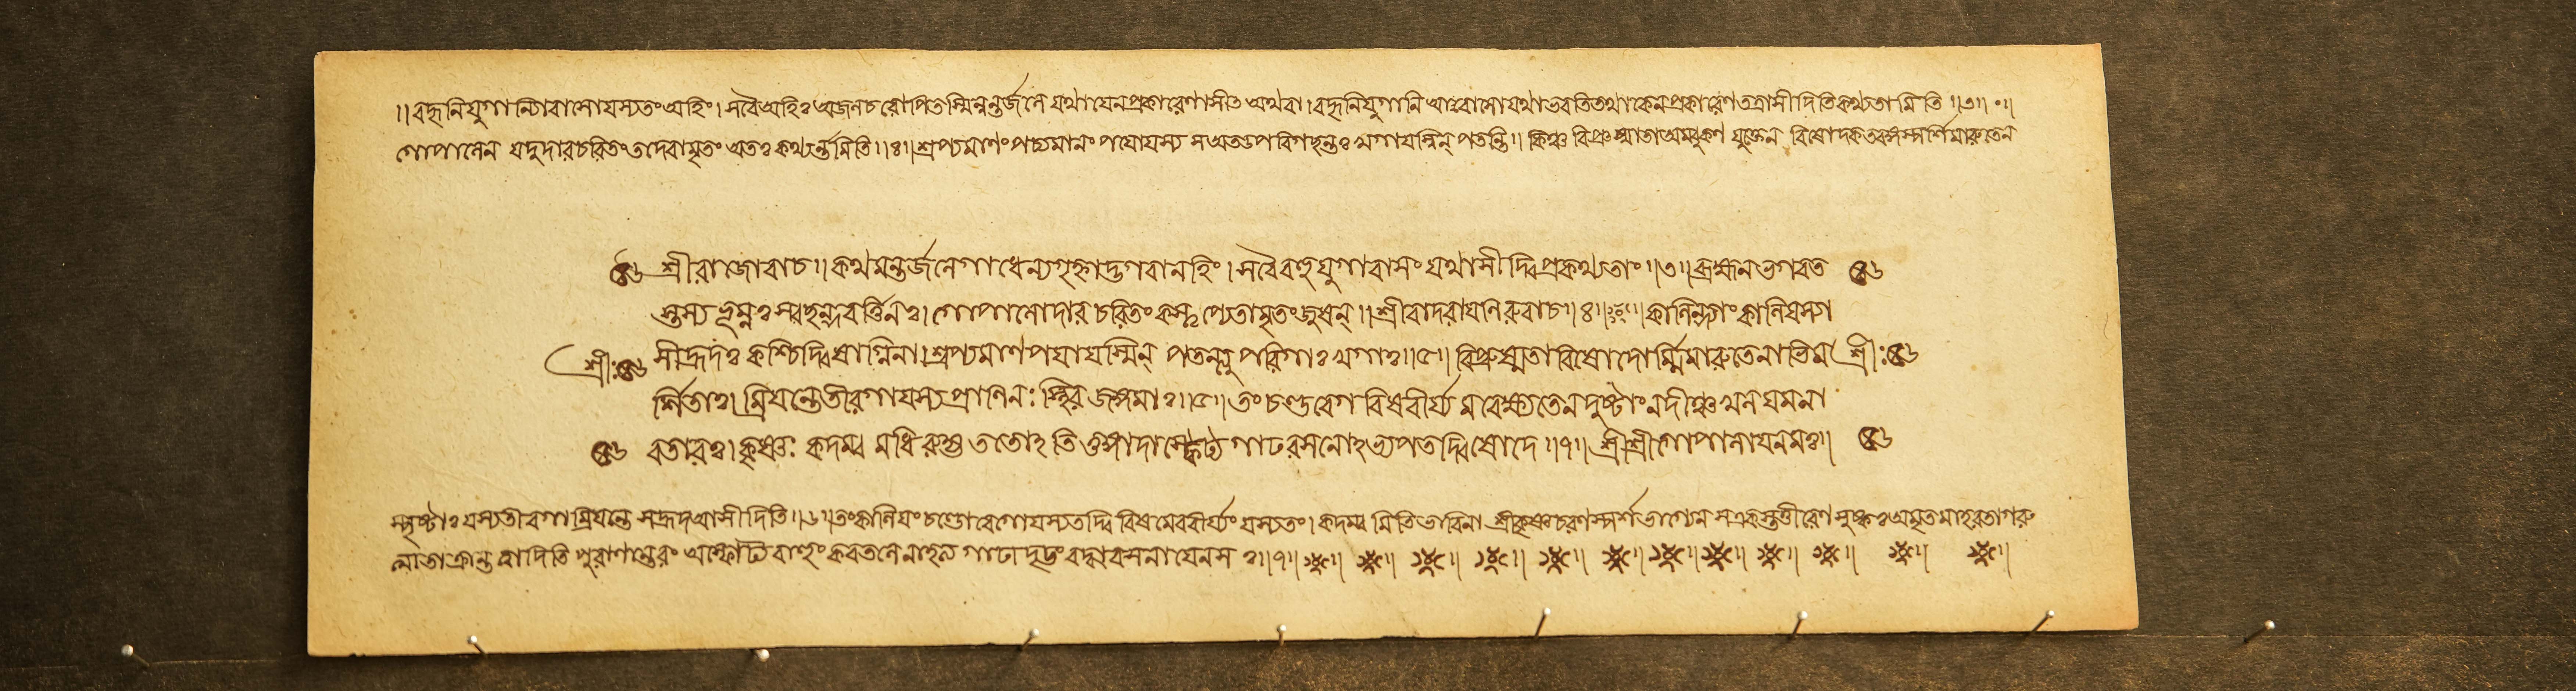 ।। বহূনিযুগান্যাবাসোযস্যতংঅহিং। সবৈঅহিঃ অজলচরোপিতস্মিন্নন্তর্জলে যথাযেনপ্রকারেণাসীত অথবা। বহূনিযুগানি আবাসোযথাভবতিতথাকেনপ্রকারেণতত্রাসীদিতিকথ্যতামিতি ।।৩।।
গোপালেন যদুদারচরিতংতদেবামৃতং অতঃ কথ্যন্তামিতি।।৪।। শ্রপ্যমাণংপাচ্যমানং পযোযস্য সঅতউপরিগছন্তঃ খগাযস্মিন্ পতন্তি।। কিঞ্চ বিপ্রুষ্মাতাঅম্বুকণ যুক্তেন বিষোদকতরঙ্গস্পর্শিমারুতেন
শ্রীরাজোবাচ।। কথমন্তর্জলেগাধেন্যগৃহ্নাদ্ভগবানহিং। সবৈবহুযুগাবাসং যথাসীদ্বিপ্রকথ্যতাং ।।৩।। ব্রহ্মনভগবত
স্তস্য ভূম্নঃ স্বছন্দবর্ত্তিনঃ। গোপালোদারচরিতং কস্তৃপ্যেতামৃতংজুষন্ ।। শ্রীবাদরাযনিরুবাচ।।৪।। কালিন্দ্যাংকালিযস্যা
শ্রী: সীদ্হ্রদঃ কশ্চিদ্বিষাগ্নিনা। শ্রপ্যমাণপযাযস্মিন্ পতন্ত্যুপরিগাঃ খগাঃ।।৫।। বিপ্রুষ্মতাবিষোদোর্ম্মিমারুতেনাভিম শ্রী:
র্শিতাঃ। ম্রিযন্তেতীরগাযস্যপ্রাণিন: স্থিরজঙ্গমাঃ।।৬।। তংচণ্ডবেগবিষবীর্য্য মবেক্ষ্যতেনদুষ্টাংনদীঞ্চখলযমনা
বতারঃ। কৃষ্ণ: কদম্ব মধিরুহ্য ততোঽতিতুঙ্গাদাস্ফোট্য গাঢরসনোন্যপতদ্বিষোদে ।।৭।। শ্রীশ্রীগোপালাযনমঃ।।
স্পৃষ্টাঃ যস্যতীরগাম্রিযন্তে সহ্রদআসীদিতি।।৬।। তংকালিযং চণ্ডোবেগোযস্যতদ্বিবিষমেববীর্য্যং যস্যতং। কদম্ব মিতিভাবিনা শ্রীকৃষ্ণচরণস্পর্শভাগ্যেন সএকস্তত্তীরেণ সুষ্কঃ অমৃতমাহরতাগরু
ত্মতাক্রান্ত ত্বাদিতি পুরাণান্তরং আস্ফোট্য বাহুং করতলেনাহত্য গাঢাদৃঢং বদ্ধারসনাযেনস ঃ।।৭।।